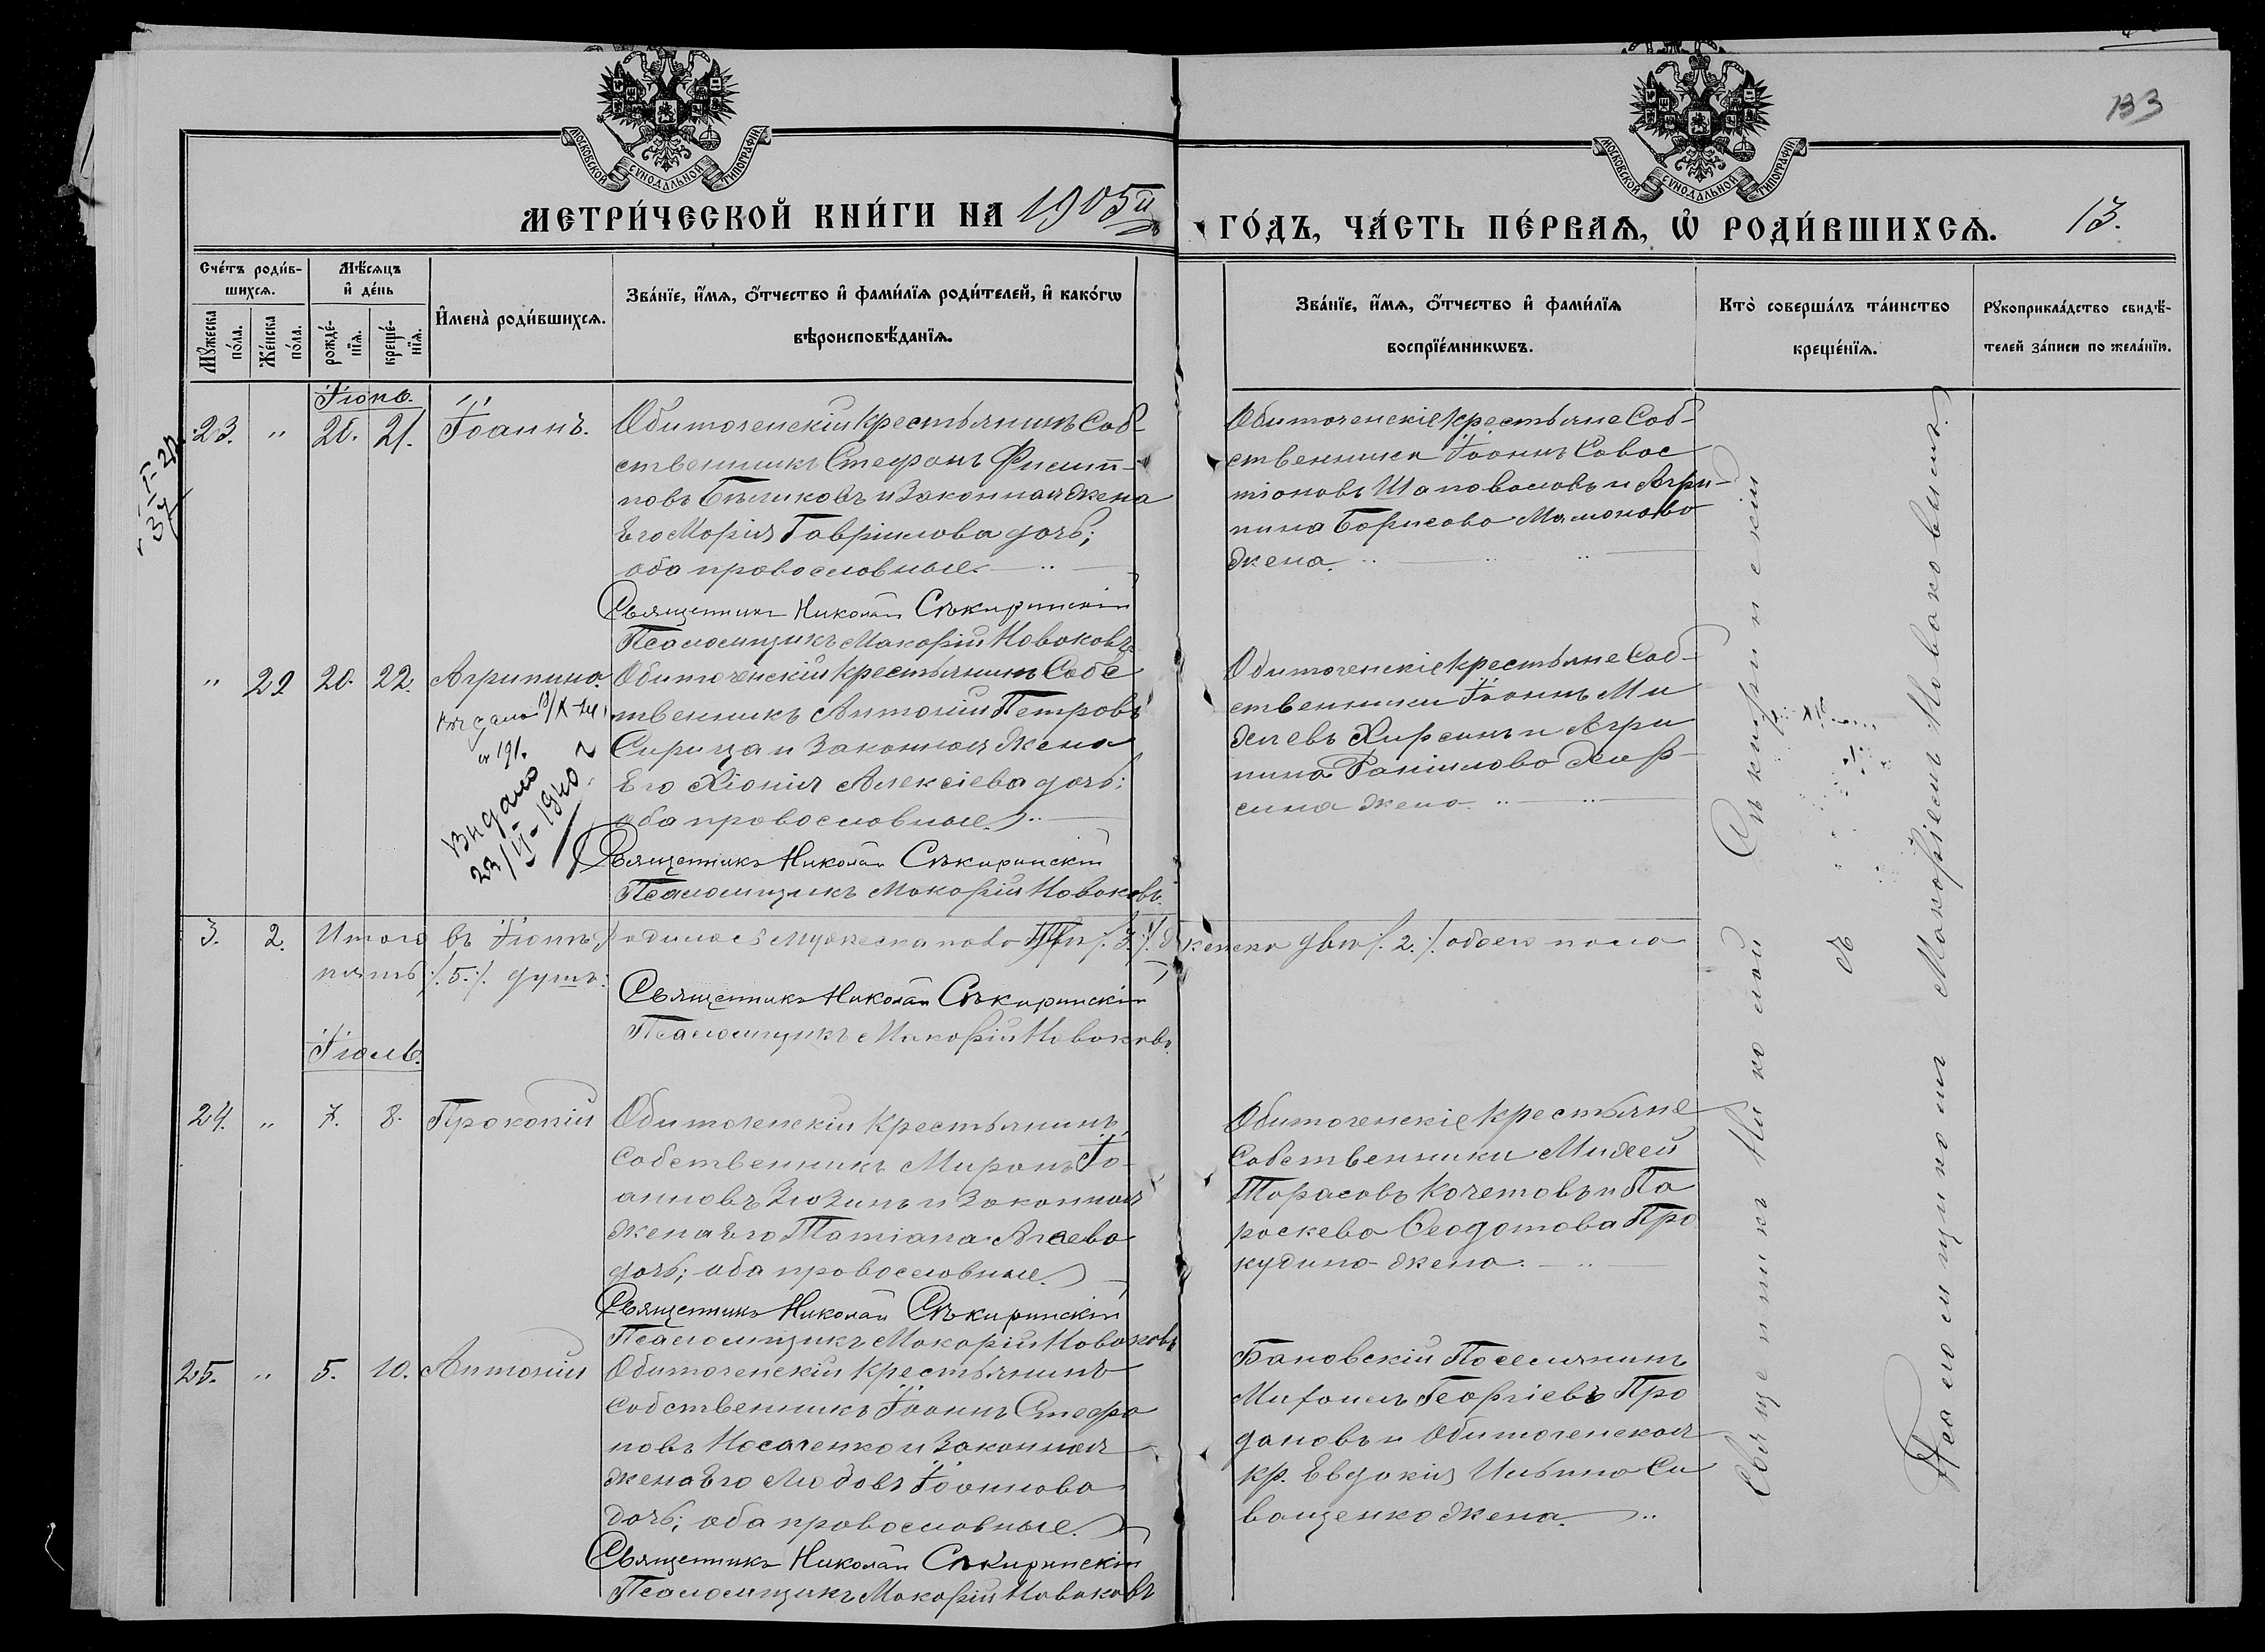 133
МОСКОВСКОЙ СѴНОДАЛЬНОЙ ТИПОГРАФІИ
МОСКОВСКОЙ СѴНОДАЛЬНОЙ ТИПОГРАФІИ
МЕТРИ́ЧЕСКОЙ КНИ́ГИ НА 1905й
ГО́ДЪ, ЧА́СТЬ ПЕ́РВАѦ, Ѽ РОДИ́ВШИХСѦ. 13.
Сче́тъ роди́в-
шихсѧ.
Мѣ́сѧцъ
и҆ де́нь
Мꙋ́жеска
по́ла.
Же́нска
по́ла.
рожде́-
нїѧ.
креще́-
нїѧ.
И҆мена̀ роди́вшихсѧ.
Зва́нїе, и҆́мѧ, ѻ҆́тчество и҆ фами́лїѧ роди́телей, и҆ како́гѡ
вѣроисповѣ́данїѧ.
Зва́нїе, и҆́мѧ, ѻ҆́тчество и҆ фами́лїѧ
воспрїе́мникѡвъ.
Кто̀ соверша́лъ та́инство
креще́нїѧ.
Рꙋкоприкла́дство свидѣ́-
телей за́писи по жела́нїю.
Іюнь.
23. " 20. 21. Іоаннъ.
Обиточенскій крестьянинъ Соб-
ственникъ Стефанъ Филип-
повъ Бѣликовъ и Законная жена
Его Марія Гавріилова дочь;
оба православные.
Священникъ Николай Сѣкиринскій
Псаломщикъ Макарій Новаковъ
Обиточенскіе крестьяне Соб-
ственники Іоаннъ Савос
тіановъ Шаповаловъ и Агри-
пина Борисова Мамонова
жена.
" 22 20. 22. Агрипина.
Видано
1940
Обиточенскій крестьянинъ Собс
твенникъ Антоній Петровъ
Сирица и Законная жена
Его Хіонія Алексіева дочь;
оба православные.
Священникъ Николай Сѣкиринскій
Псаломщикъ Макарій Новаковъ.
Обиточенскіе крестьяне Соб-
ственники Іоаннъ Ми
нина Даніилова
сина жена
3. 2. Итого въ Іюнѣ родилось мужеска пола три /.3./. женска двѣ /.2./. обоего пола
пять /.5./. душъ.
Священникъ Николай Сѣкиринскій
Псаломщикъ Макарій Новаковъ.
Іюль.
24. " 7. 8. Прокопій
Обиточенскій крестьянинъ
Собственникъ Миронъ Іо-
анновъ Зюзинъ и Законная
жена его Татіана Агеева
дочь; оба православные.
Священникъ Николай Сѣкиринскій
Псаломщикъ Макарій Новаковъ
Обиточенскіе крестьяне
Собственники Михей
Тарасовъ Кочетовъ и Па
раскева Ѳеодотова Про
кудина жена.
25. " 5. 10. Антоній
Обиточенскій крестьянинъ
Собственникъ Іоаннъ Стефа
новъ Носаченко и Законная
жена Его Любовь Іоаннова
дочь; оба православные.
Священникъ Николай Сѣкиринскій
Псаломщикъ Макарій Новаковъ
Бановскій Поселянинъ
Михаилъ Георгіевъ Про
дановъ и Обиточенская
кр. Евдокія Ильина Си
ващенко жена.
Священникъ Николай Сѣкиринскій
съ
Псаломщикомъ Макаріемъ Новаковымъ.